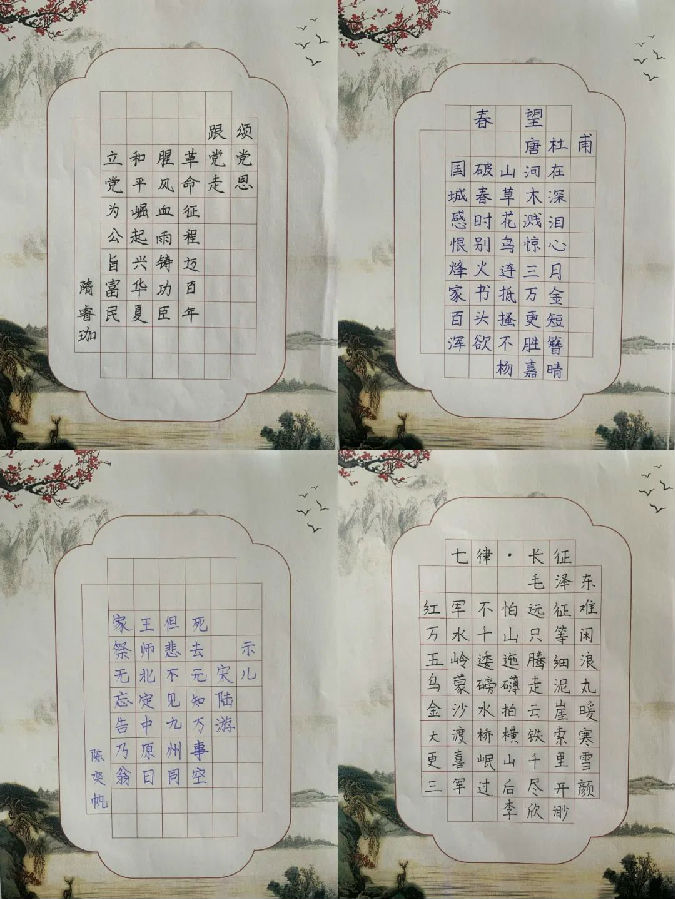 颂党恩
跟党走
革命征程迈百年
腥风血雨铸功臣
和平崛起兴华夏
立党为公旨富民
隋睿珈
春望
唐杜甫
国破山河在
城春草木深
感时花溅泪
恨别鸟惊心
烽火连三月
家书抵万金
百头搔更短
浑欲不胜簪
杨嘉晴
示儿
宋陆游
死去元知万事空
但悲不见九州同
王师北定中原日
家祭无忘告乃翁
陈奕帆
七律·长征
毛泽东
红军不怕远征难
万水千山只等闲
五岭逶迤腾细浪
乌蒙磅礴走泥丸
金沙水拍云崖暖
大渡桥横铁索寒
更喜岷山千里雪
三军过后尽开颜
李欣渺